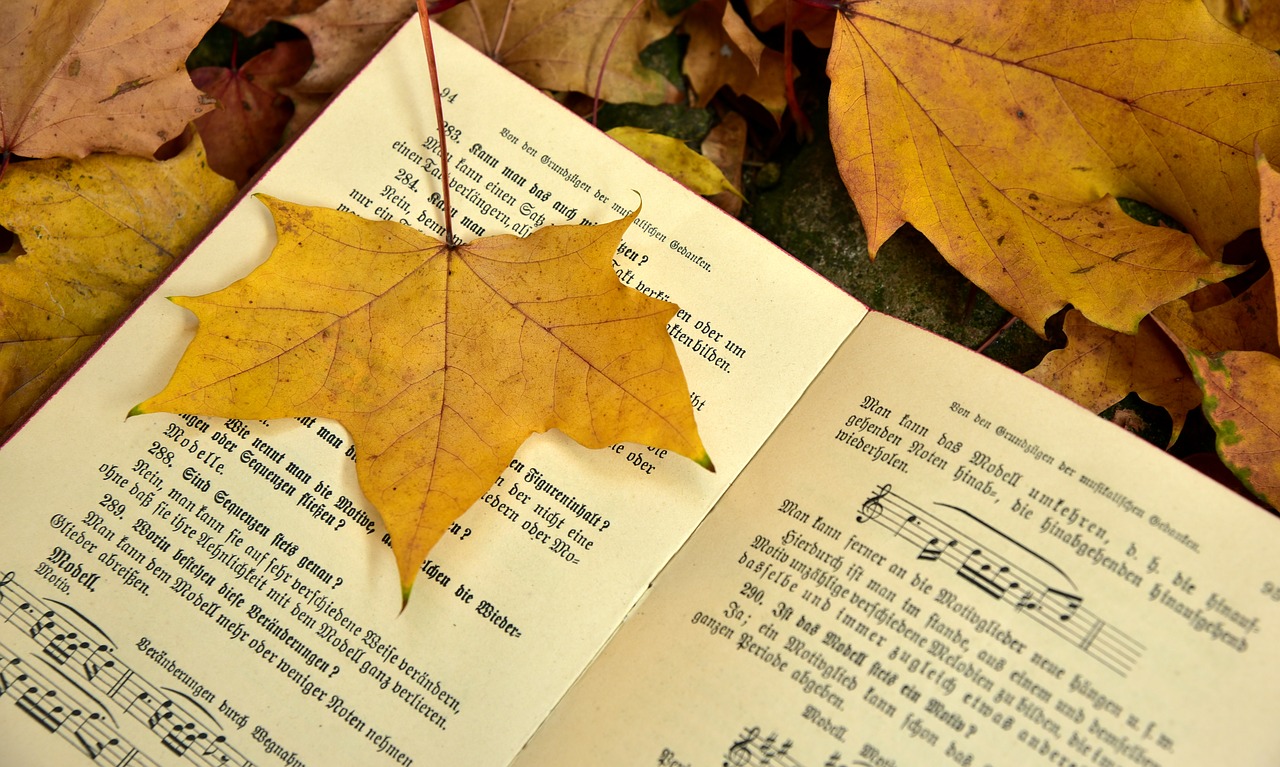 94
Von den Grundzügen der musikalischen Gedanken.
283. Kann man das auch
Man kann einen Satz
einen Takt verlängern, als
284. Kann man
Nein, denn
nur ein
Takt
oder um
Takten bilden.
oder
Figureninhalt?
der nicht eine
Gliedern oder Mo-
Wie nennt man die Motive,
oder Sequenzen fließen?
die Wieder-
Modelle.
288. Sind Sequenzen stets genau?
Nein, man kann sie auf sehr verschiedene Weise verändern,
ohne daß sie ihre Aehnlichkeit mit dem Modell ganz verlieren.
289. Worin bestehen diese Veränderungen?
Man kann dem Modell mehr oder weniger Noten nehmen
Glieder abreißen.
Modell.
Motiv.
Veränderungen durch
Von den Grundzügen der musikalischen Gedanken.
Man kann das Modell umkehren, d. h. die hinauf-
gehenden Noten hinab-, die hinabgehenden hinaufgehend
wiederholen.
Man kann ferner an die Motivglieder neue hängen u. s. w.
Hierdurch ist man im stande, aus einem und demselben
Motiv unzählige verschiedene Melodien zu bilden, die immer
dasselbe und immer zugleich etwas anderes
290. Ist das Modell stets ein Motiv?
Ja; ein Motivglied kann schon das
ganzen Periode abgeben.
Modell.